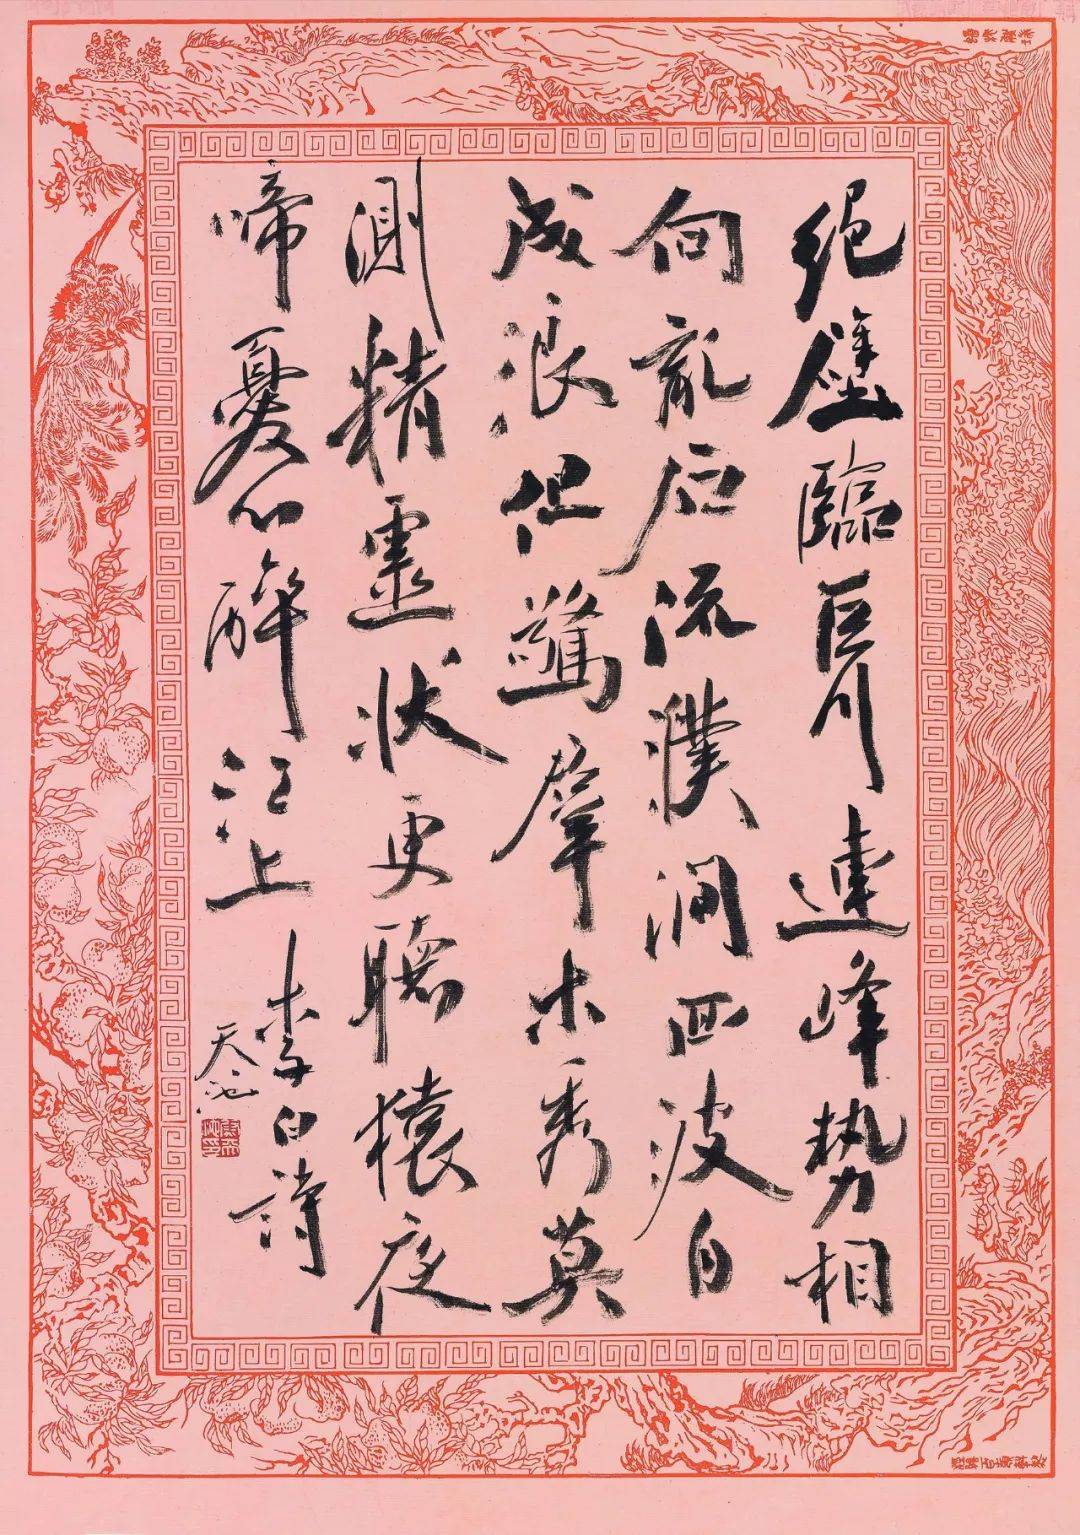 絕壁臨巨川連峰势相
向亂石流濮澗回波自
成浪但驚羣木秀莫
測精靈狀更聽猿夜
啼憂心醉江上 李白詩
天池